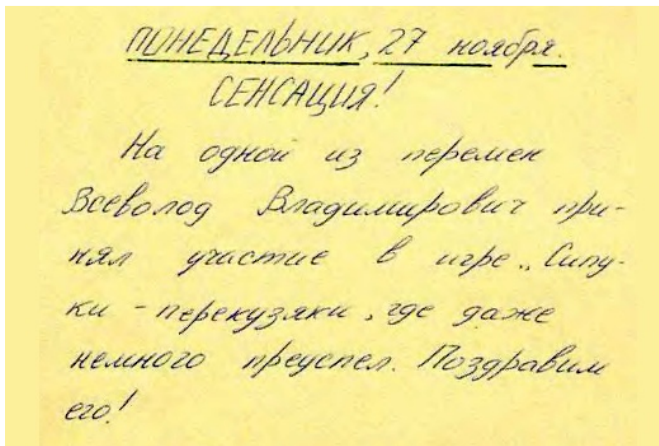 ПОНЕДЕЛЬНИК, 27 ноября.
СЕНСАЦИЯ!
На одной из перемен
Всеволод Владимирович при-
нял участие в игре „Сипу-
ки-перекузяки, где даже
немного преуспел. Поздравим
его!